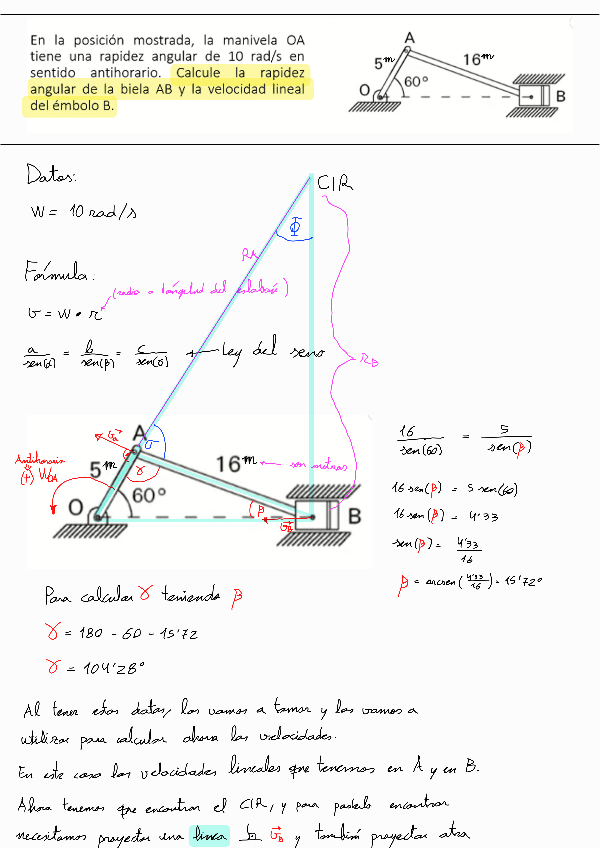 En la posición mostrada, la manivela OA
tiene una rapidez angular de 10 rad/s en
sentido antihorario. Calcule la rapidez
angular de la biela AB y la velocidad lineal
del émbolo B.
A
5 m
16 m
60°
O
B
Datos:
CIR
W = 10 rad/s
Φ
RA
Fórmula:
(radio o longitud del eslabón)
v = w • r
a/sen(α) = b/sen(β) = c/sen(σ) ← Ley del seno
RB
A
σ
Antihorario
(+) WOA
5 m
γ
16 m ← son metros
60°
β
O
B
16/sen(60) = 5/sen(β)
16 sen(β) = 5 sen(60)
16 sen(β) = 4'33
sen(β) = 4'33/16
β = arcsen(4'33/16) = 15'72°
Para calcular γ teniendo β
γ = 180 - 60 - 15'72
γ = 104'28°
Al tener estos datos, los vamos a tomar y los vamos a
utilizar para calcular ahora las velocidades.
En este caso las velocidades lineales que tenemos en A y en B.
Ahora tenemos que encontrar el CIR, y para poderlo encontrar
necesitamos proyectar una linea ⊾ vB y también proyectar otra